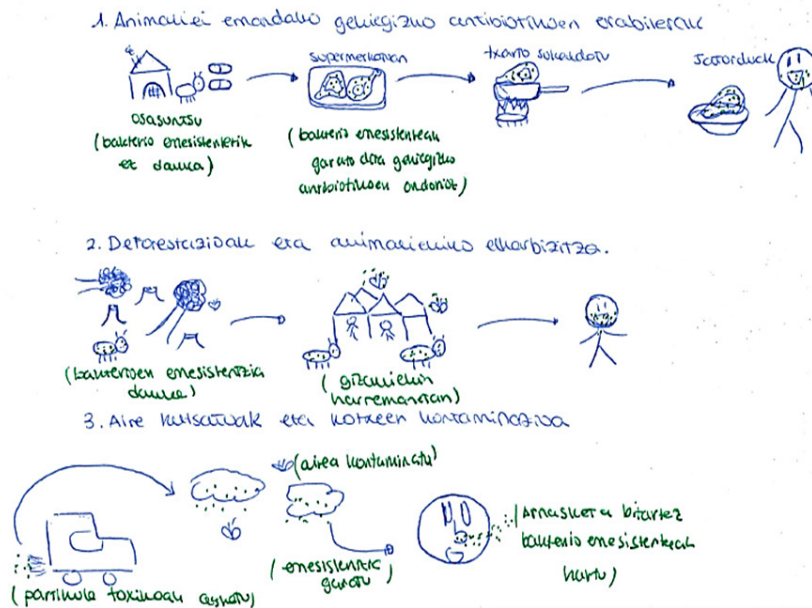 1. Animaliei emandako gehiegizko antibiotikoen erabilerak
supermerkatuan
txarto sukaldatu
osasuntsu
(bakterio erresistenterik
ez dauka)
(bakterio erresistenteak
garatu dira gehiegizko
antibiotikoen ondorioz)
2. Deforestazioak eta animaliekiko elkarbizitza.
(bakterioen erresistentzia
dauka)
(gizakiekin
harremanetan)
3. Aire kutsatuak eta kotxeen kontaminazioa
(airea kontaminatu)
(partikula toxikoak askatu)
(erresistentzia
garatu)
(Arnasketa bitartez
bakterio erresistenteak
hartu)